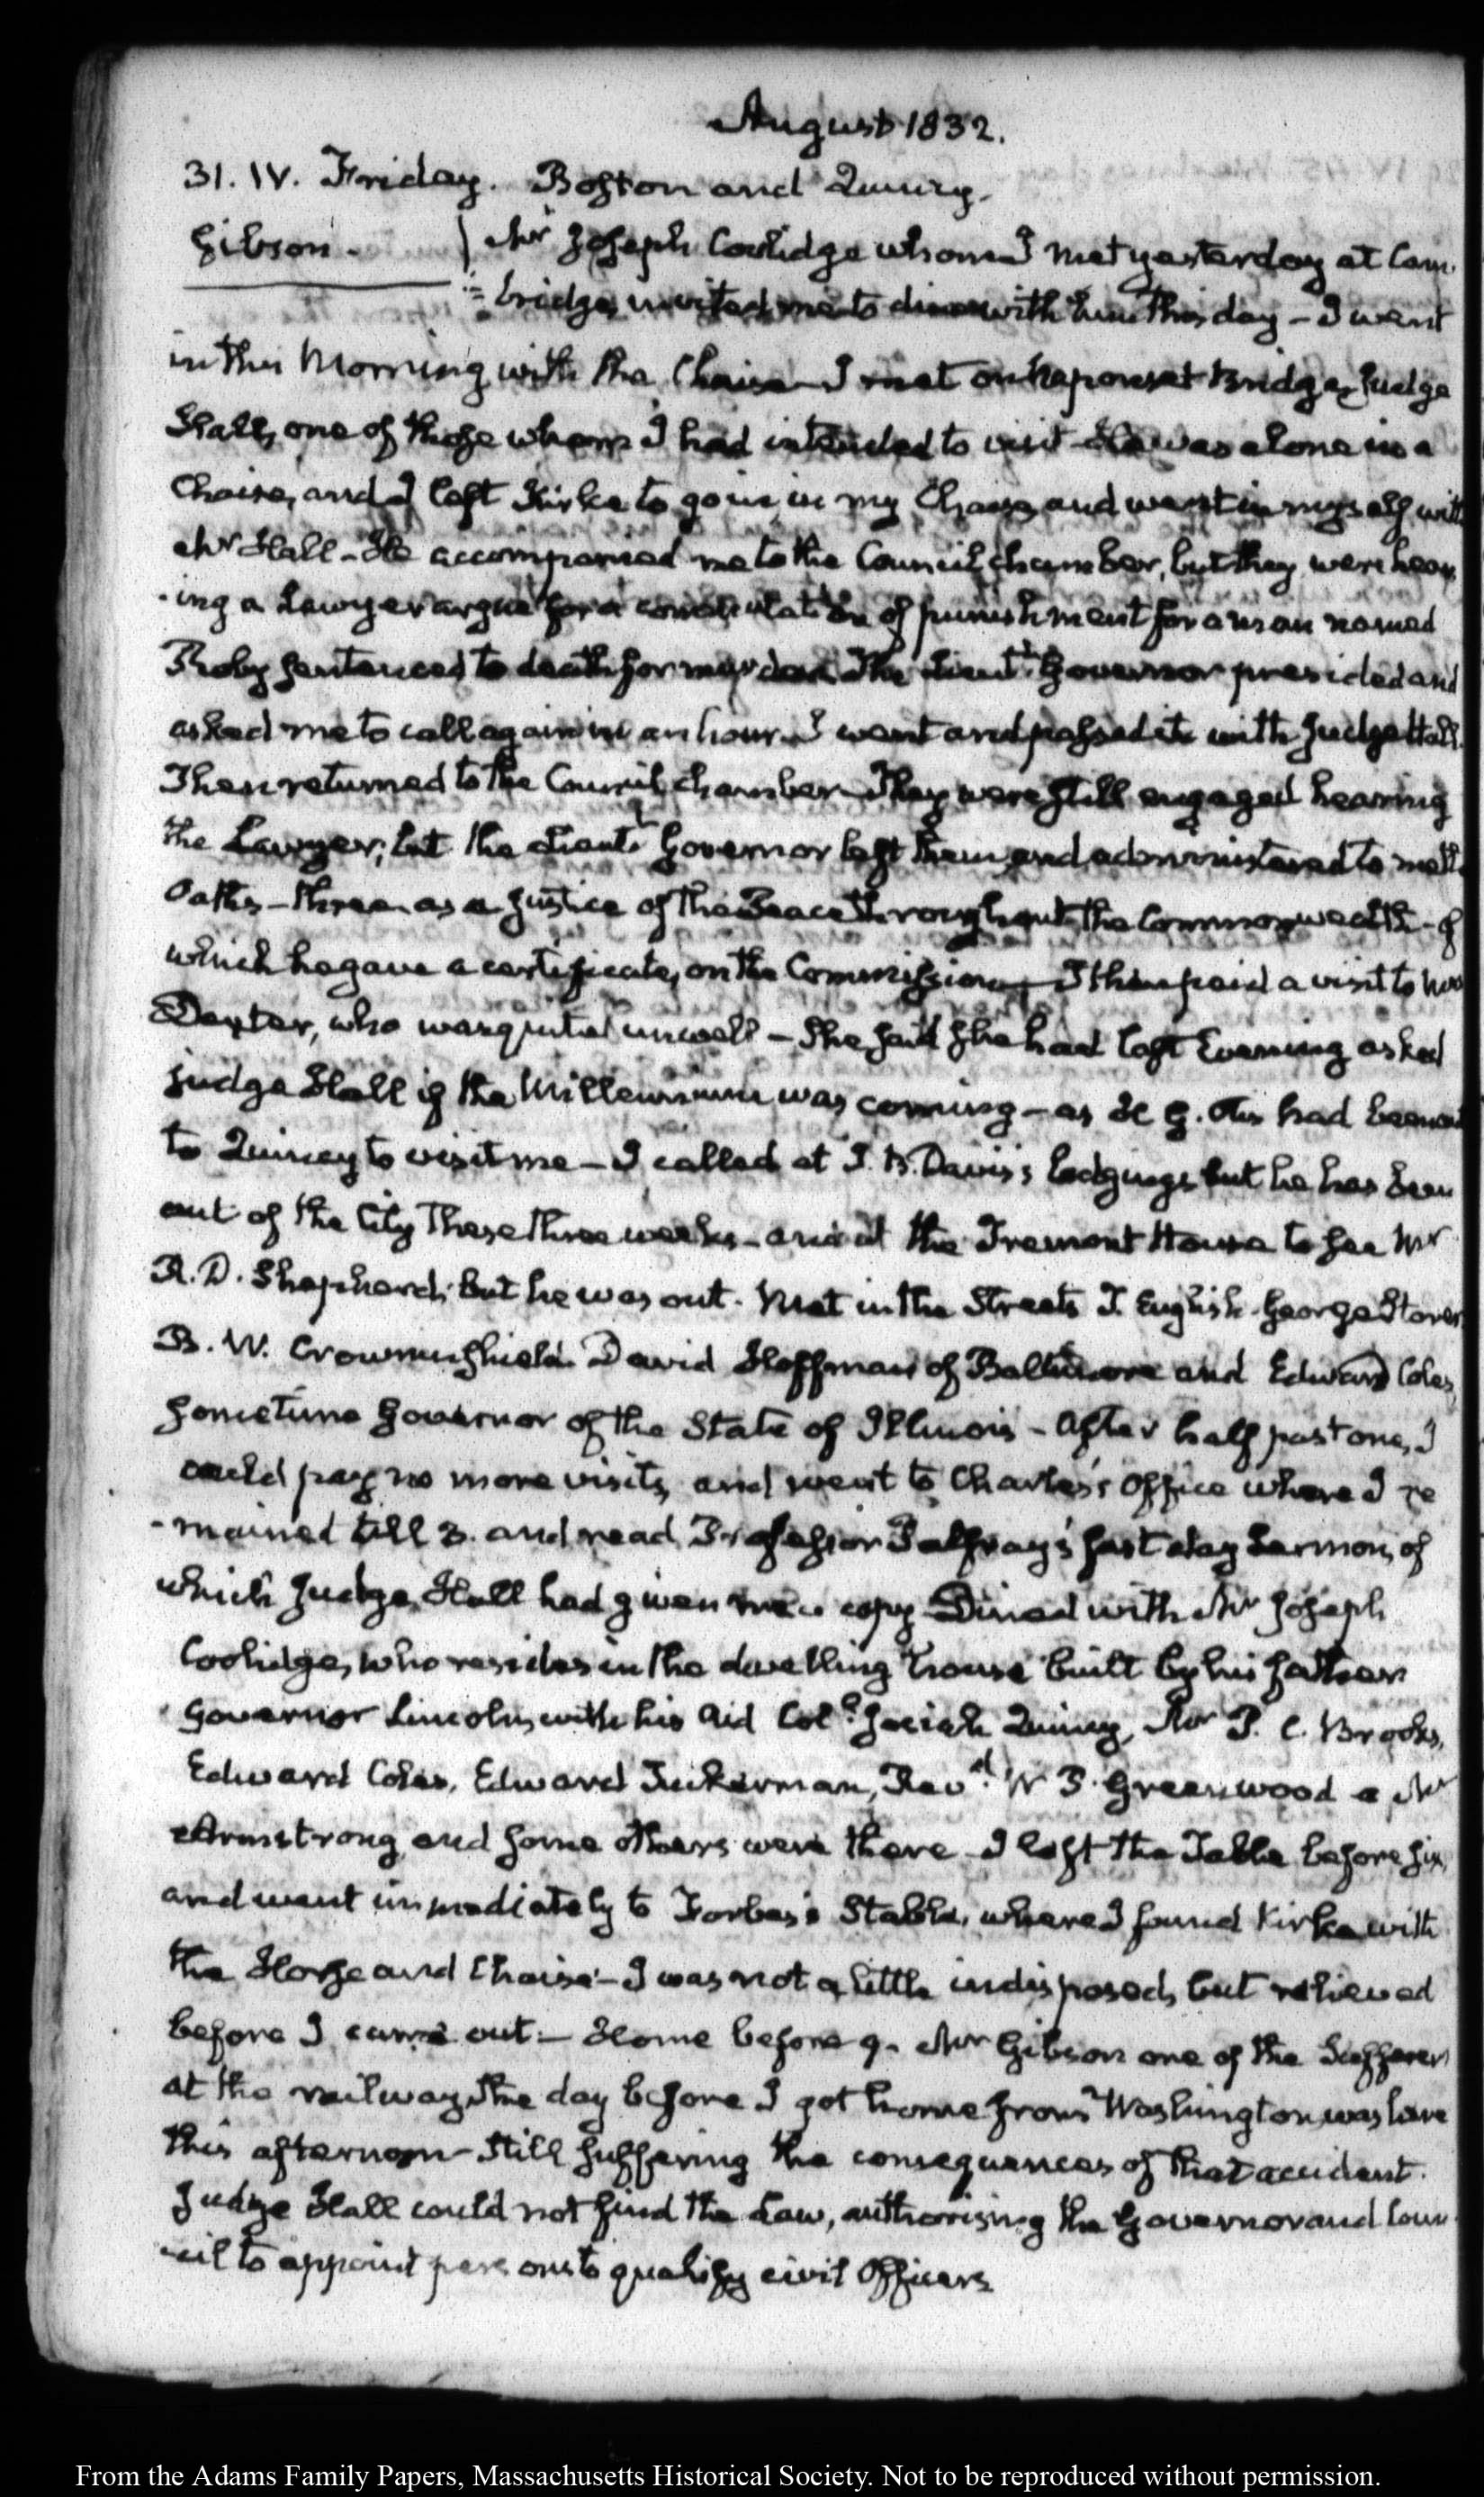 August 1832.
31. IV. Friday. Boston and Quincy.
Gibson. } Mr Joseph Coolidge whom I met yesterday at Cam-
=bridge, invited me to dine with him this day – I went
in this Morning with the Chaise – I met on Neponset Bridge, Judge
Hall, one of those whom I had intended to visit – He was alone in a
Chaise, and I left Kirke to go in, in my Chaise, and went in myself with
Mr Hall – He accompanied me to the Council chamber, but they were hear-
-ing a Lawyer argue for a commutation of punishment for a man named
Roby sentenced to death for murder. The Lieutt Governor presided and
asked me to call again in an hour. I went and passed it with Judge Hall.
Then returned to the Council chamber – They were still engaged hearing
the Lawyer; but the Lieutt Governor left them and administered to me the
Oaths – three as a Justice of the Peace throughout the Commonwealth – of
which he gave a certificate, on the Commission – I then paid a visit to Mrs
Dexter, who was quite unwell – She said she had last Evening asked
Judge Hall if the Millennium was coming – as H. G. Otis had been out
to Quincy to visit me – I called at J. B. Davis's lodgings but he has been
out of the City these three weeks – and at the Tremont House to see Mr
R. D. Shepherd; but he was out. Met in the Streets T. English. George Storer
B. W. Crowninshield. David Hoffman of Baltimore and Edward Coles,
sometime Governor of the State of Illinois – After half past one, I
could pay no more visits, and went to Charles's Office where I re
-mained till 3. and read Professor Palfrey's fast day Sermon, of
which Judge Hall had given me a copy – Dined with Mr Joseph
Coolidge, who resides in the dwelling house built by his father
Governor Lincoln, with his Aid Coll. Josiah Quincy, Mr P. C. Brooks,
Edward Coles, Edward Tuckerman, Revd. W P. Greenwood a Mr
Armstrong and some others were there – I left the Table before six,
and went immediately to Forbes's Stable, where I found Kirke with
the Horse and Chaise – I was not a little indisposed, but relieved
before I came out – Home before 9. Mr Gibson one of the Sufferers
at the railway, the day before I got home from Washington, was here
this afternoon – Still suffering the consequences of that accident.
Judge Hall could not find the Law, authorising the Governor and Coun
-cil to appoint persons to qualify civil Officers
From the Adams Family Papers, Massachusetts Historical Society. Not to be reproduced without permission.